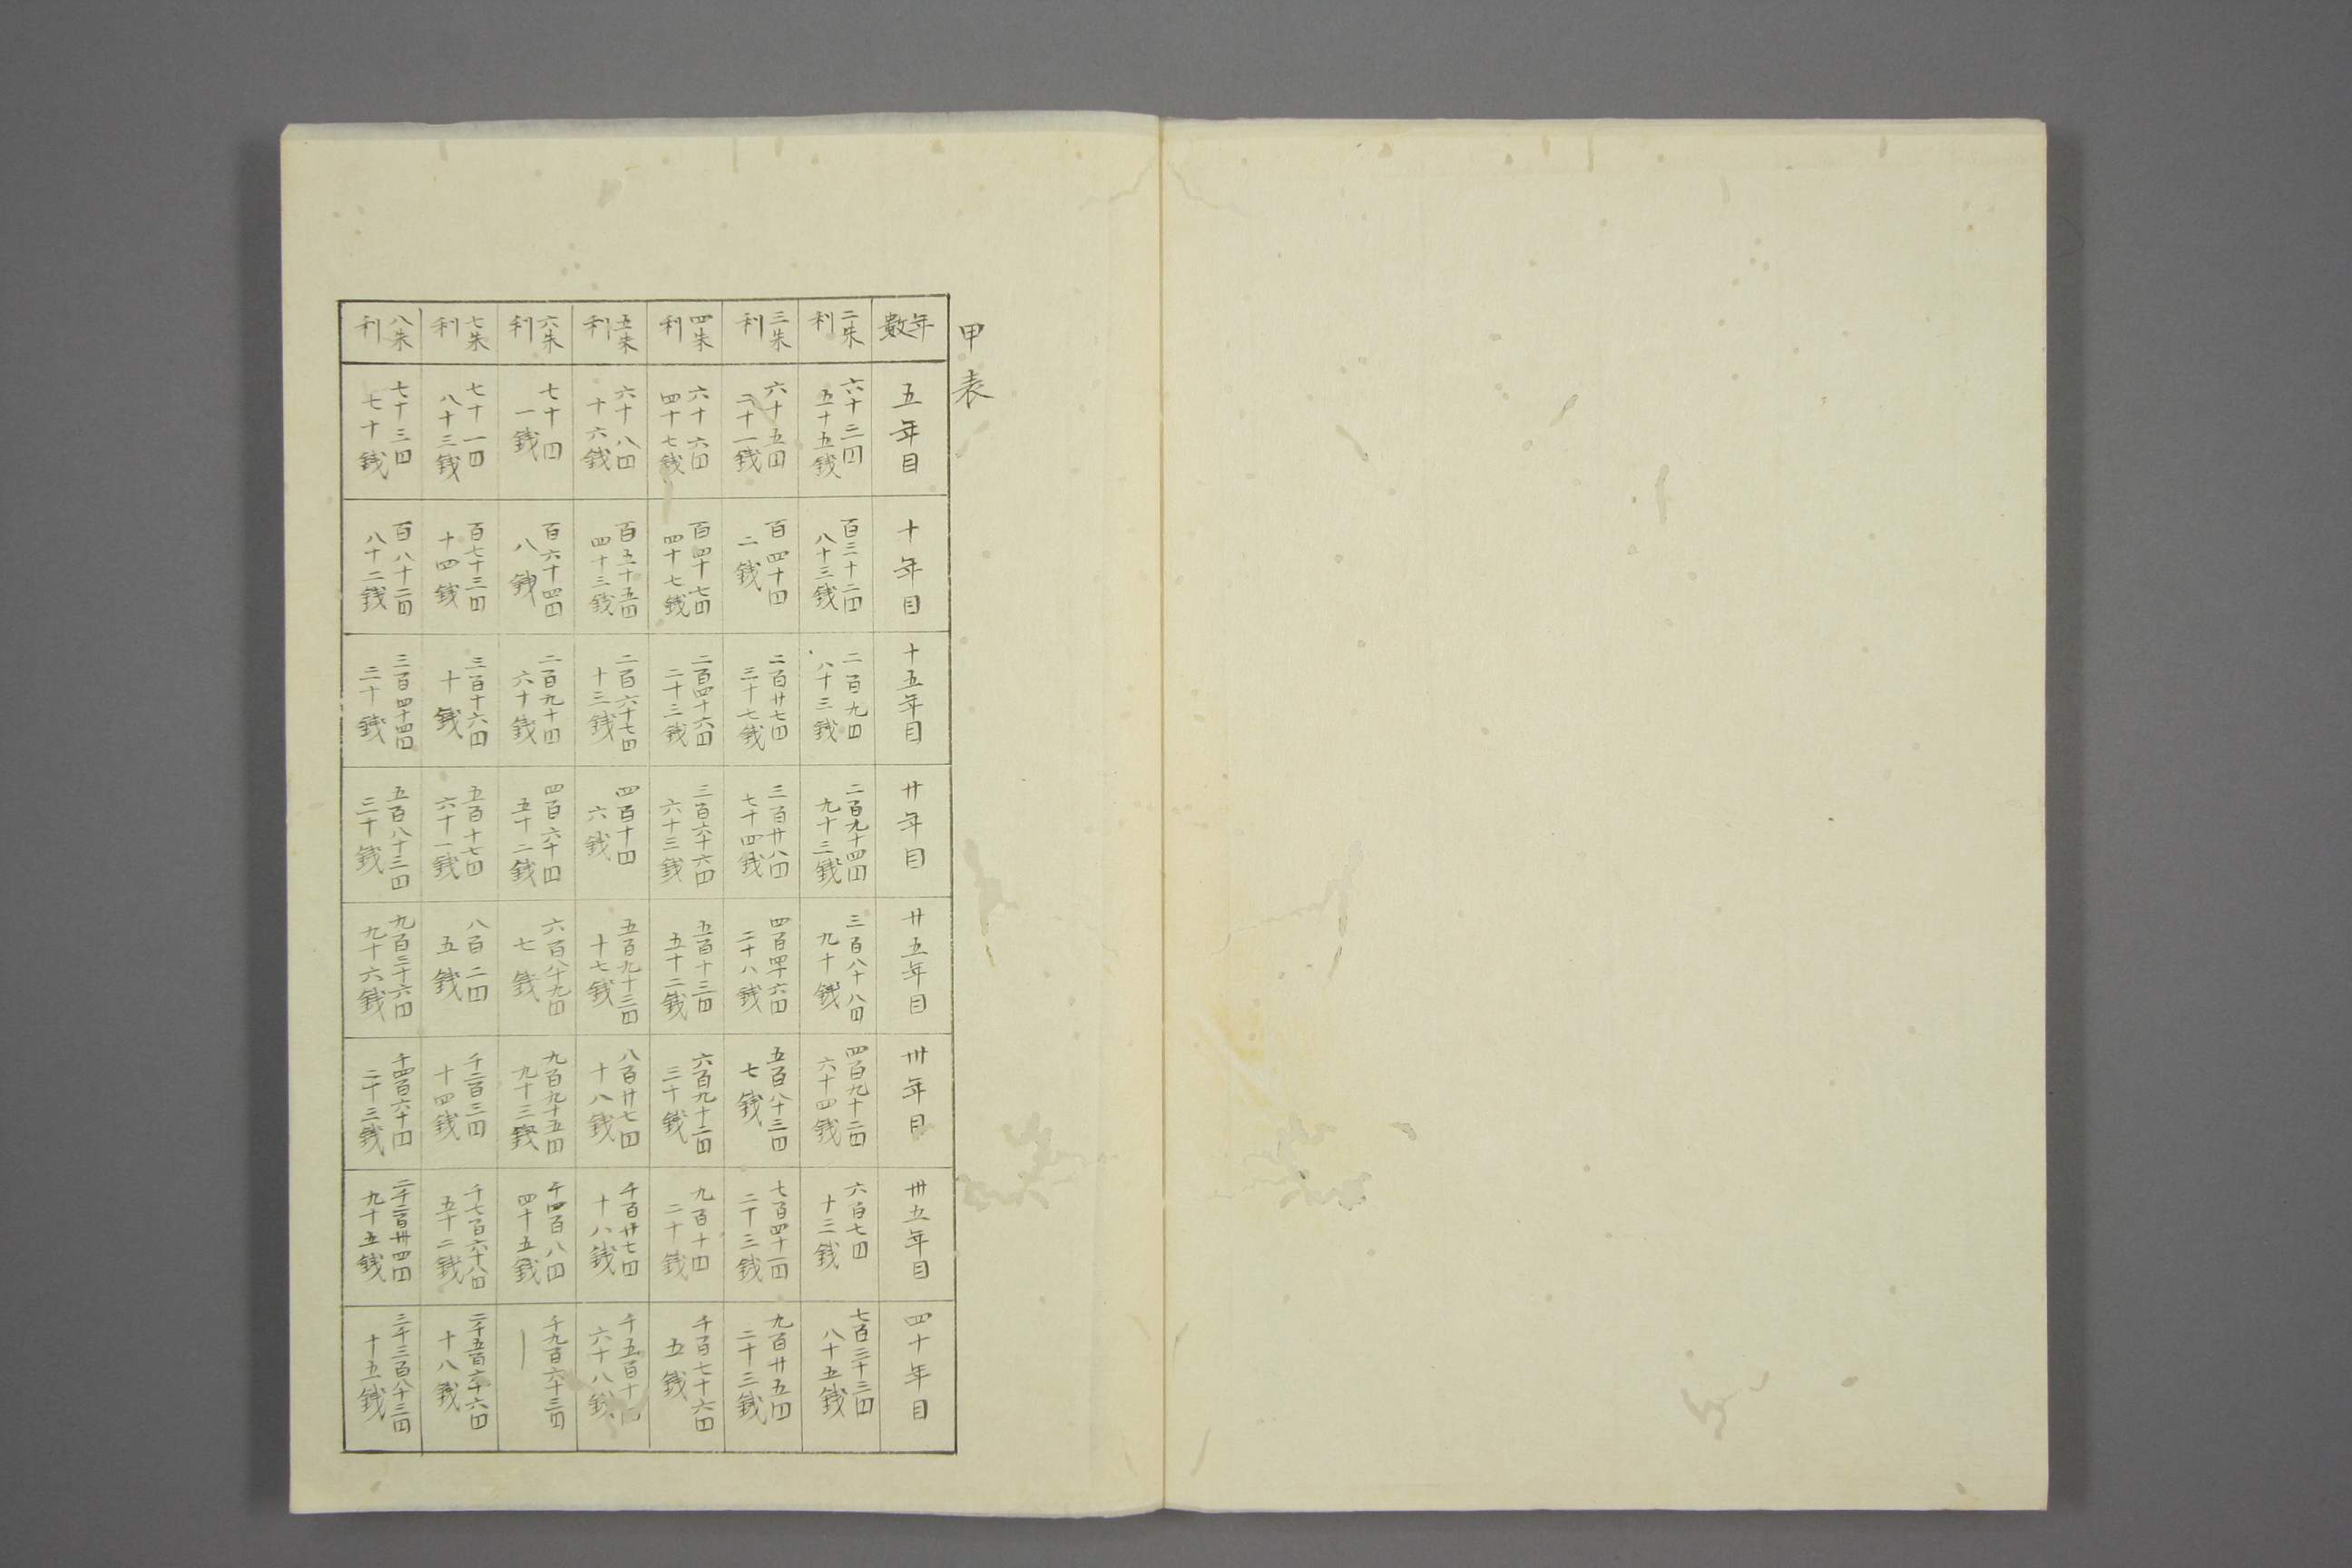 甲表
年數
五年目
十年目
十五年目
廿年目
廿五年目
卅年目
卅五年目
四十年目
二朱
利
六十二円
五十五銭
百三十二円
八十三銭
二百九円
八十三銭
二百九十四円
九十三銭
三百八十八円
九十銭
四百九十二円
六十四銭
六百七円
十三銭
七百三十三円
八十五銭
三朱
利
六十五円
二十一銭
百四十円
二銭
二百廿七円
三十七銭
三百廿八円
七十四銭
四百四十六円
二十八銭
五百八十三円
七銭
七百四十一円
二十三銭
九百廿五円
二十三銭
四朱
利
六十六円
四十七銭
百四十七円
四十七銭
二百四十六円
二十二銭
三百六十六円
六十三銭
五百十三円
五十二銭
六百九十二円
三十銭
九百十円
二十銭
千百七十六円
五銭
五朱
利
六十八円
十六銭
百五十五円
四十三銭
二百六十七円
十三銭
四百十円
六銭
五百九十三円
十七銭
八百廿七円
十八銭
千百廿七円
十八銭
千五百十円
六十八銭
六朱
利
七十円
一銭
百六十四円
八銭
二百九十円
六十銭
四百六十円
五十二銭
六百八十九円
七銭
九百九十五円
九十三銭
千四百八円
四十五銭
千九百六十三円
｜
七朱
利
七十一円
八十三銭
百七十三円
十四銭
三百十六円
十銭
五百十七円
六十一銭
八百二円
五銭
千二百三円
十四銭
千七百六十八円
五十二銭
二千五百六十六円
十八銭
八朱
利
七十三円
七十銭
百八十二円
八十二銭
三百四十四円
二十銭
五百八十三円
三十銭
九百三十六円
九十六銭
千四百六十円
二十三銭
二千二百卅四円
九十五銭
三千三百八十三円
十五銭